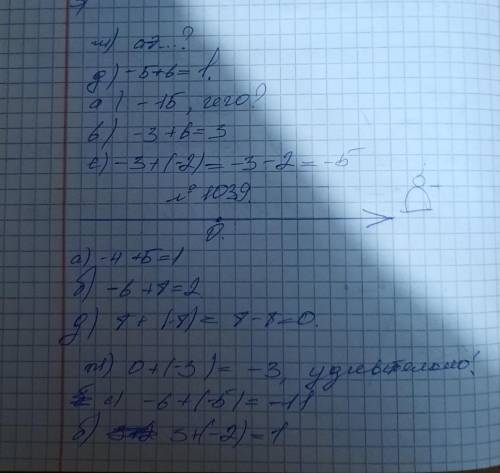 ж) а э...?
д) -5+6=1.
а) -15, чего?
в) -3+6=3
е) -3+(-2)=-3-2=-5
№1039
0.
а) -4+5=1
б) -6+8=2
д) 8+(-8)=8-8=0.
ж) 0+(-3)= -3, удивительно!
е) -6+(-5)=-11
б) 3+(-2)=1